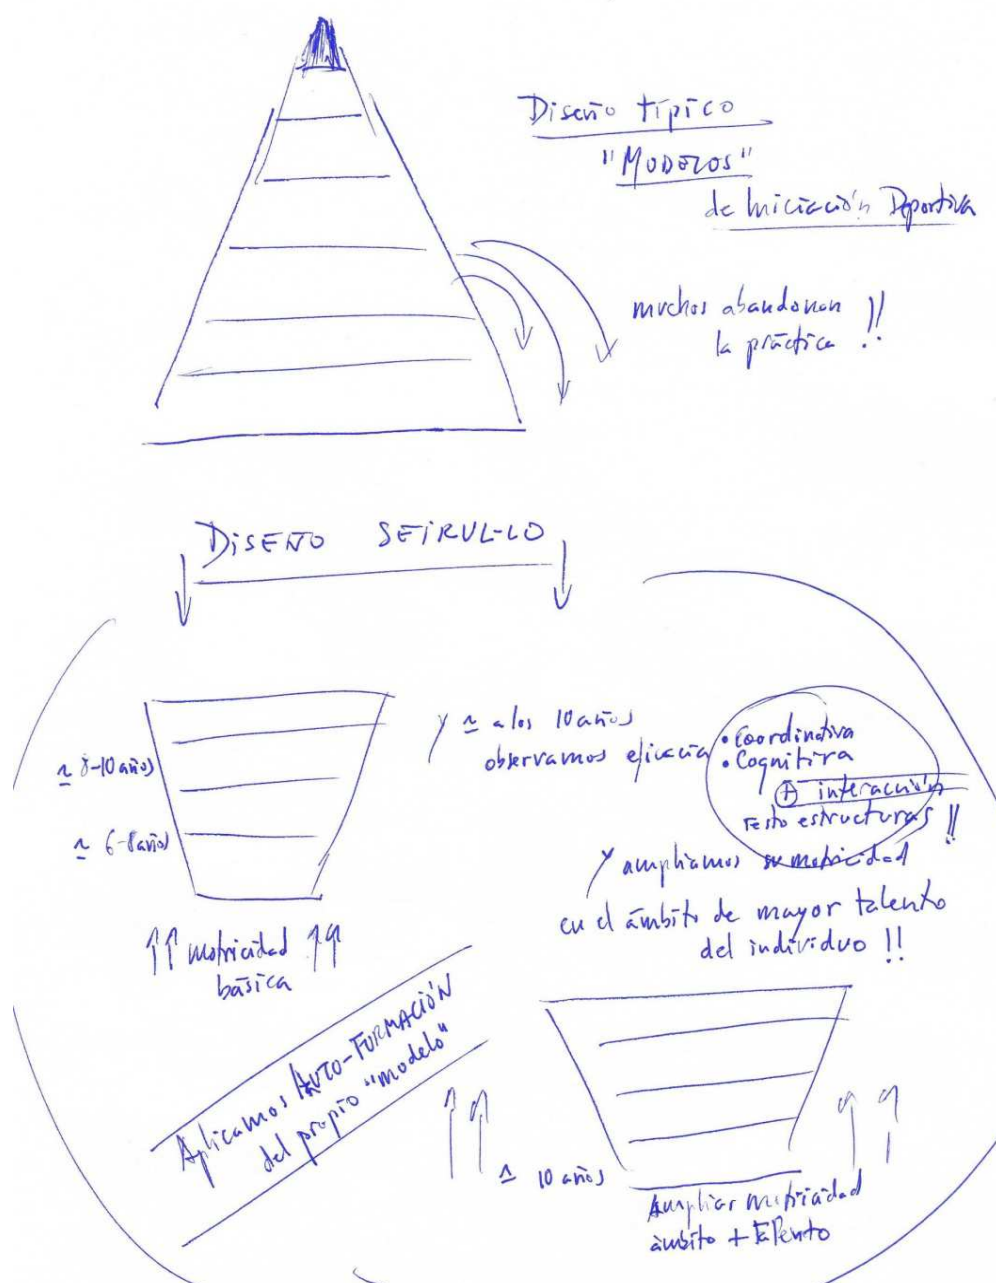 Diseño típico
"MODELOS"
de Iniciación Deportiva
muchos abandonan
la práctica !!
DISEÑO SEIRUL-LO
≃ 8-10 años
≃ 6-8 años
motricidad
básica
Y ≃ a los 10 años
observamos eficacia
• Coordinativa
• Cognitiva
+ interacción
resto estructuras !!
Y ampliamos su motricidad
en el ámbito de mayor talento
del individuo !!
Aplicamos AUTO-FORMACIÓN
del propio "modelo"
≃ 10 años
Ampliar motricidad
ámbito + talento